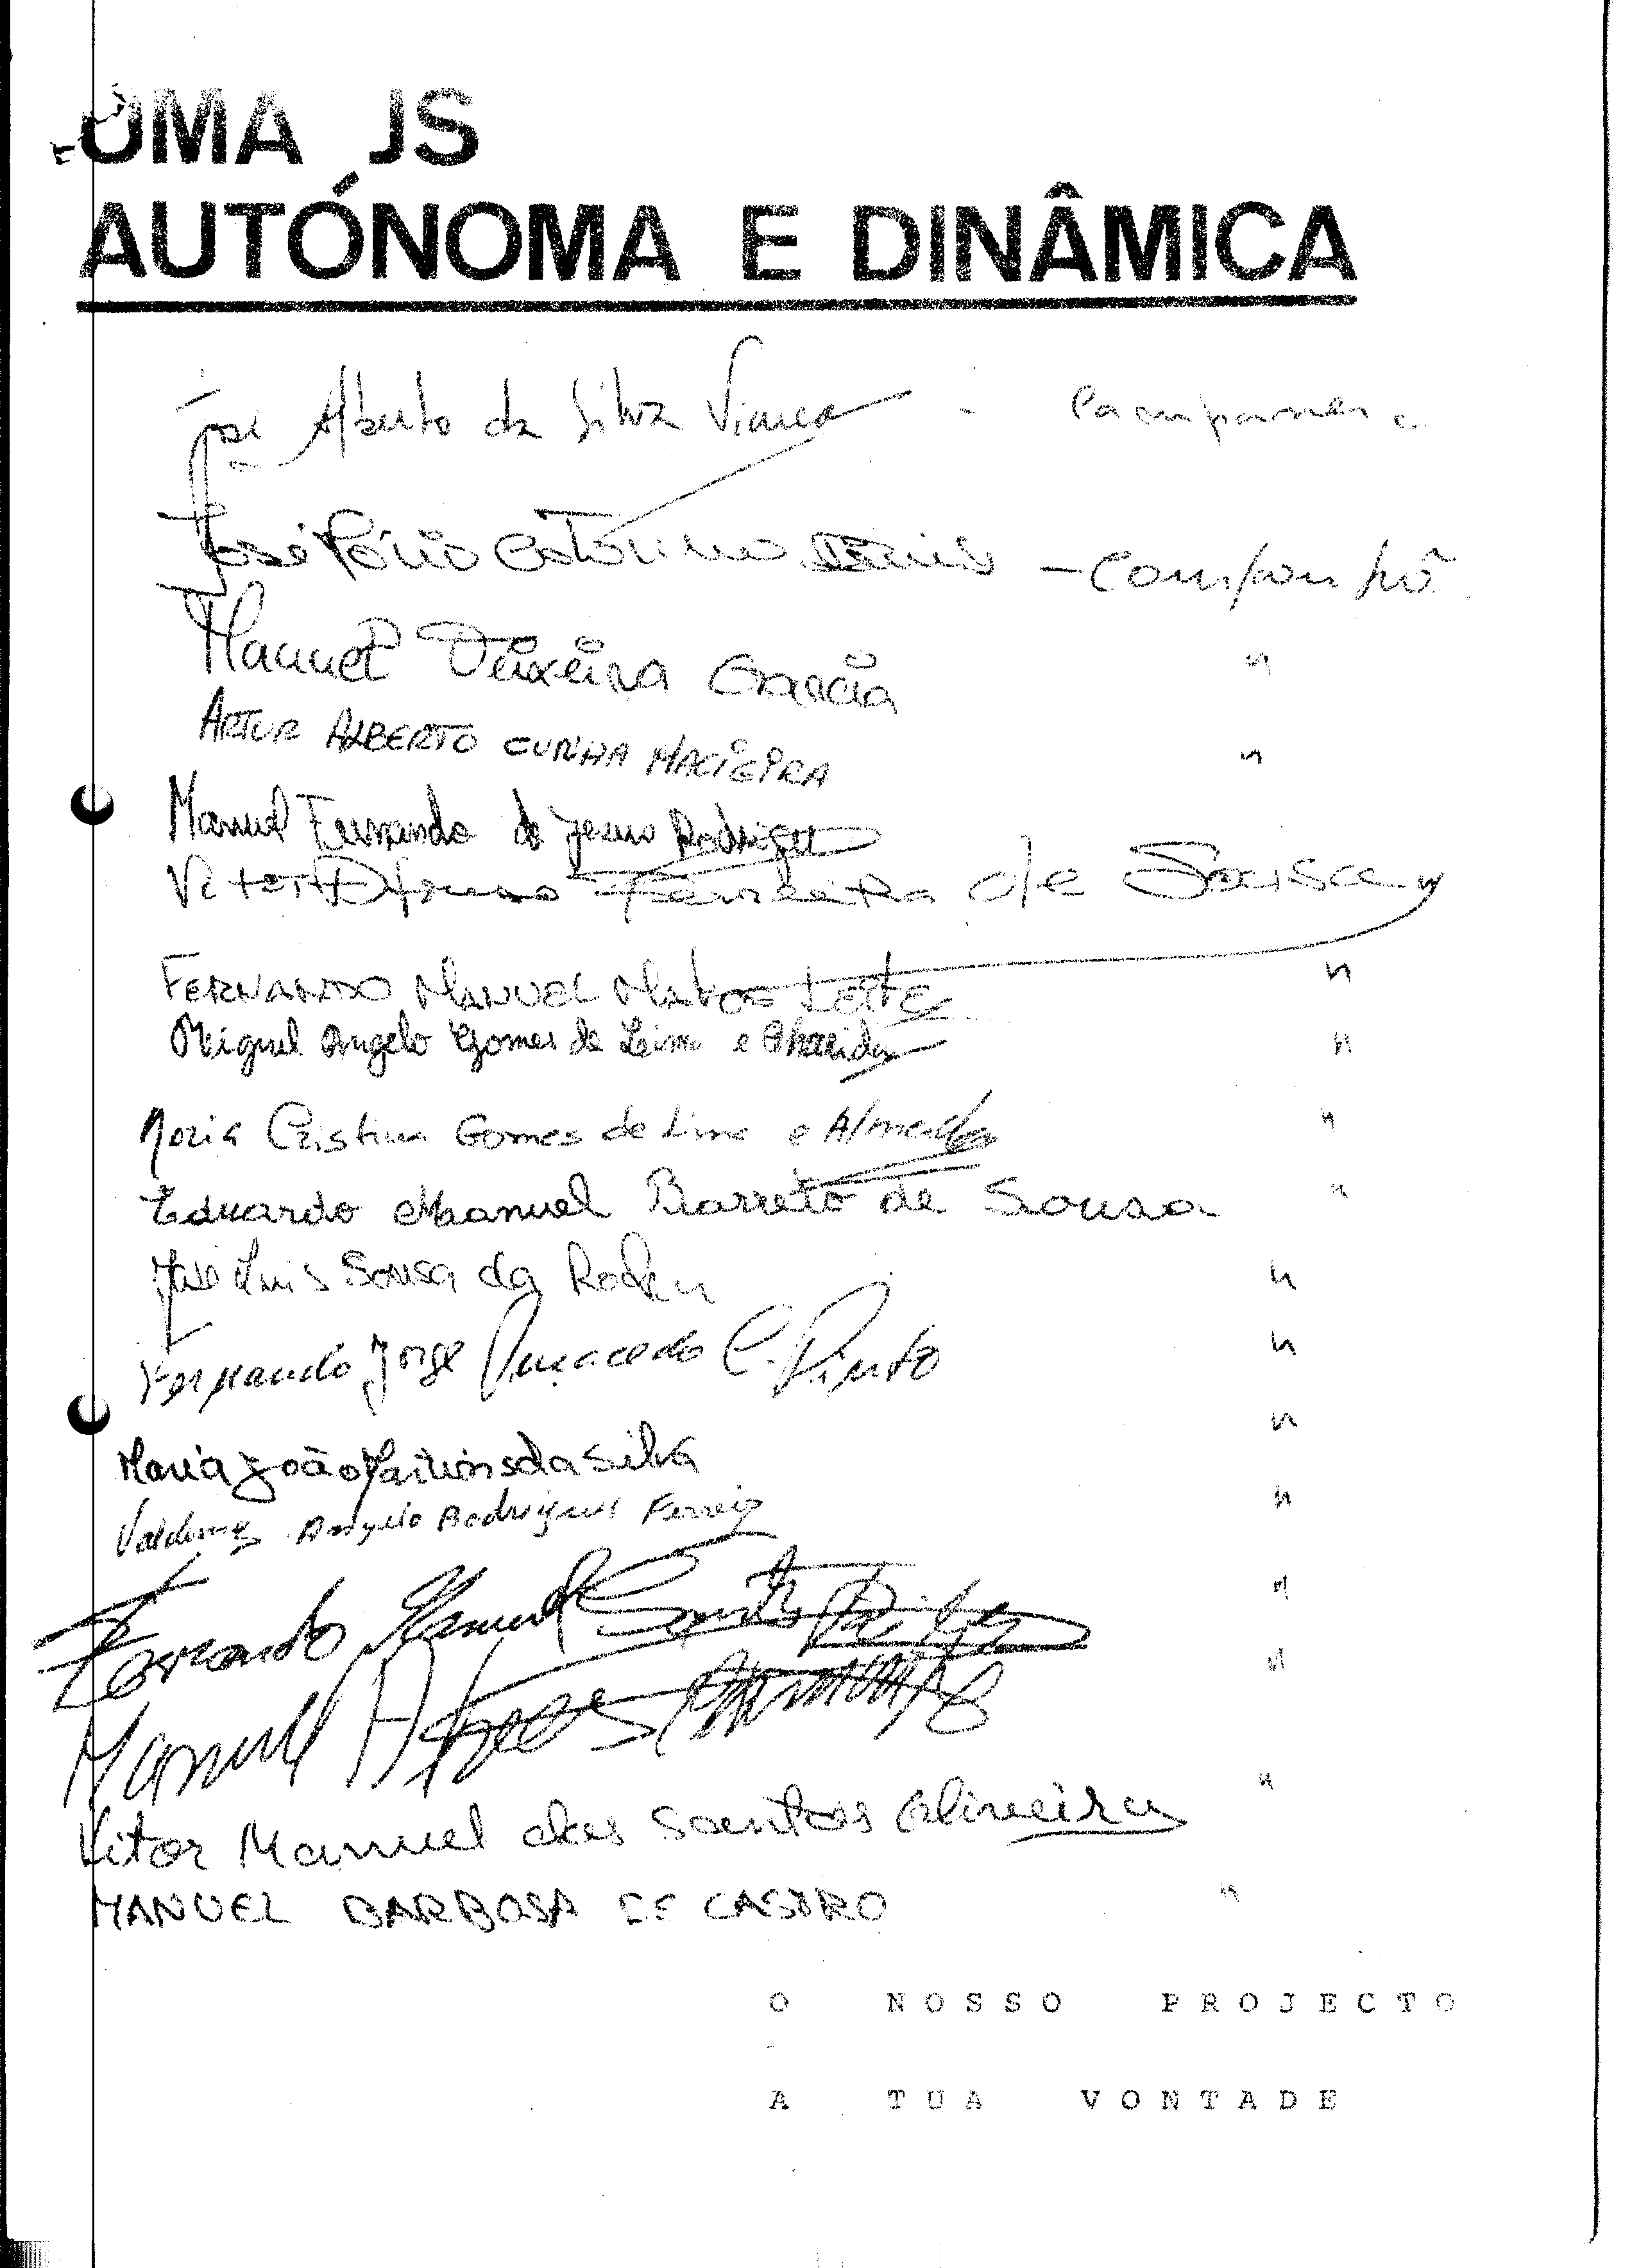 UMA JS
AUTÓNOMA E DINÂMICA
José Alberto da Silva Viana - Campanhã
José - Campanhã
Manuel Teixeira Garcia "
ARTUR ALBERTO CUNHA MACIEIRA "
Manuel Fernando de Jesus Rodrigues
Vitor Afonso Ferreira de Sousa "
FERNANDO MANUEL Matos LEITE "
Miguel Angelo Gomes de Lima e Almeida "
Maria Cristina Gomes de Lima e Almeida "
Eduardo Manuel Barreto de Sousa "
José Luis Sousa da Rocha "
Fernando Jorge Macedo C. Pinto "
Maria João Martins da Silva "
Valdemar Angelo Rodrigues Ferreira "
Fernando Manuel Santos "
Manuel "
Vitor Manuel dos Santos Oliveira "
MANUEL BARBOSA DE CASTRO "
O NOSSO PROJECTO
A TUA VONTADE